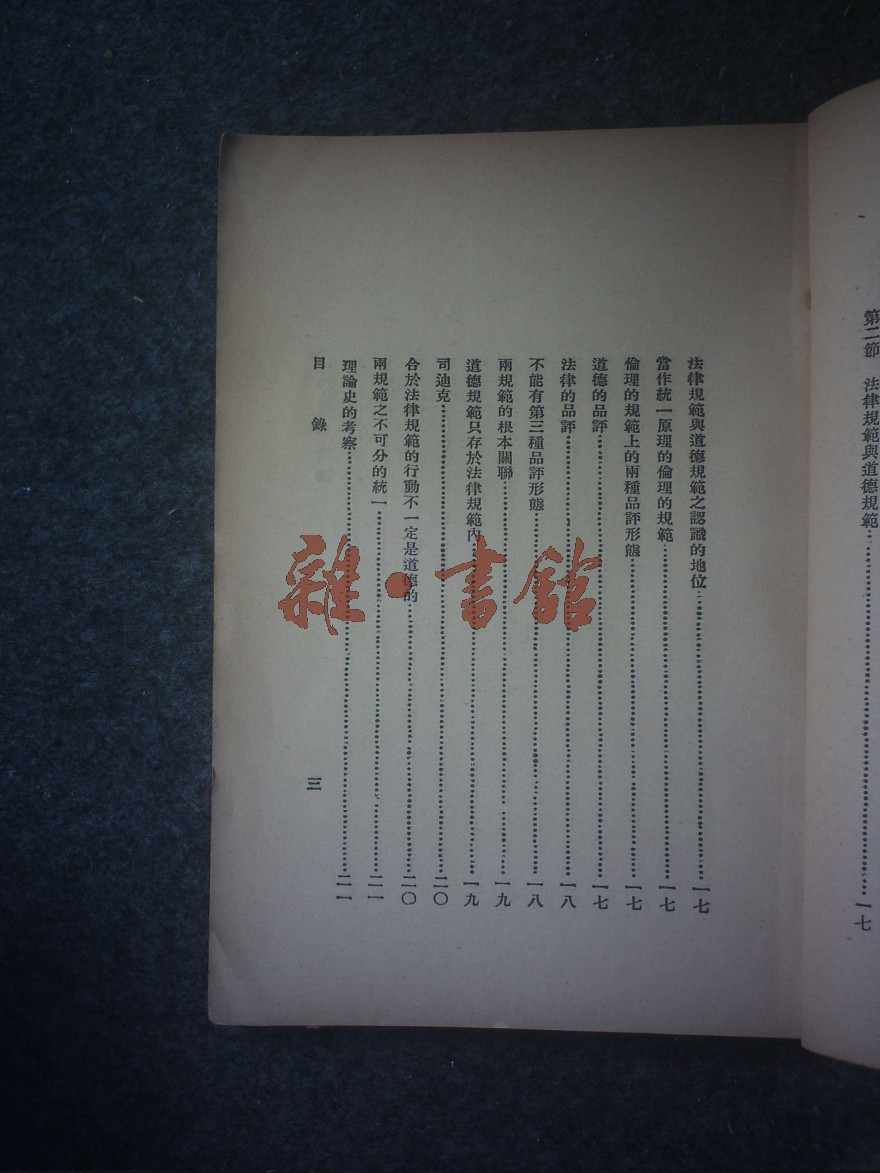 第二節　法律規範與道德規範……一七
法律規範與道德規範之認識的地位……一七
當作統一原理的倫理的規範……一七
倫理的規範上的兩種品評形態……一七
道德的品評……一七
法律的品評……一八
不能有第三種品評形態……一八
兩規範的根本關聯……一九
道德規範只存於法律規範內……一九
司迪克……二〇
合於法律規範的行動不一定是道德的……二〇
兩規範之不可分的統一……二一
理論史的考察……二一
目　錄
三
雜·書館